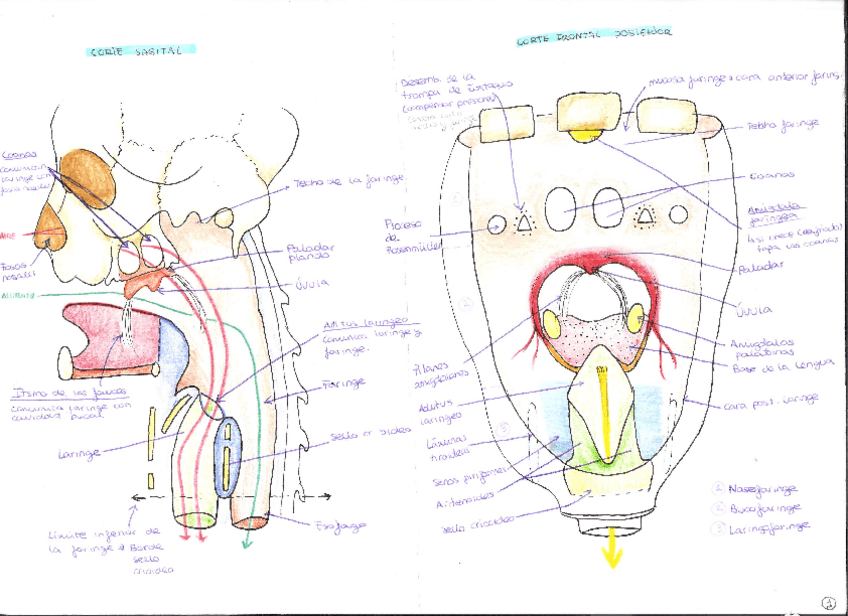 CORTE SAGITAL
Coanas
comunican
faringe con
fosas nasales
AIRE
Fosas
nasales
ALIMENTO
Techo de la faringe
Paladar
blando
Úvula
Aditus laríngeo
comunica laringe y
faringe.
Faringe
Sello cricoideo
Istmo de las fauces
comunica faringe con
cavidad bucal
Laringe
Límite inferior de
la faringe → Borde
sello
cricoideo
Esófago
CORTE FRONTAL POSTERIOR
Desemb. de la
trompa de Eustaquio
(compensar presiones)
mucosa faringe → cara anterior faringe
Techo faringe
Coanas
Amígdala
faríngea
Si crece (vegetación)
tapa las coanas
Receso
de
Rosenmüller
Paladar
Úvula
Amígdalas
palatinas
Base de la lengua
Cara post. laringe
Pilares
amigdalinos
Aditus
laríngeo
Láminas
tiroideas
Senos piriformes
Aritenoides
Sello cricoideo
① Nasofaringe
② Bucofaringe
③ Laringofaringe
1